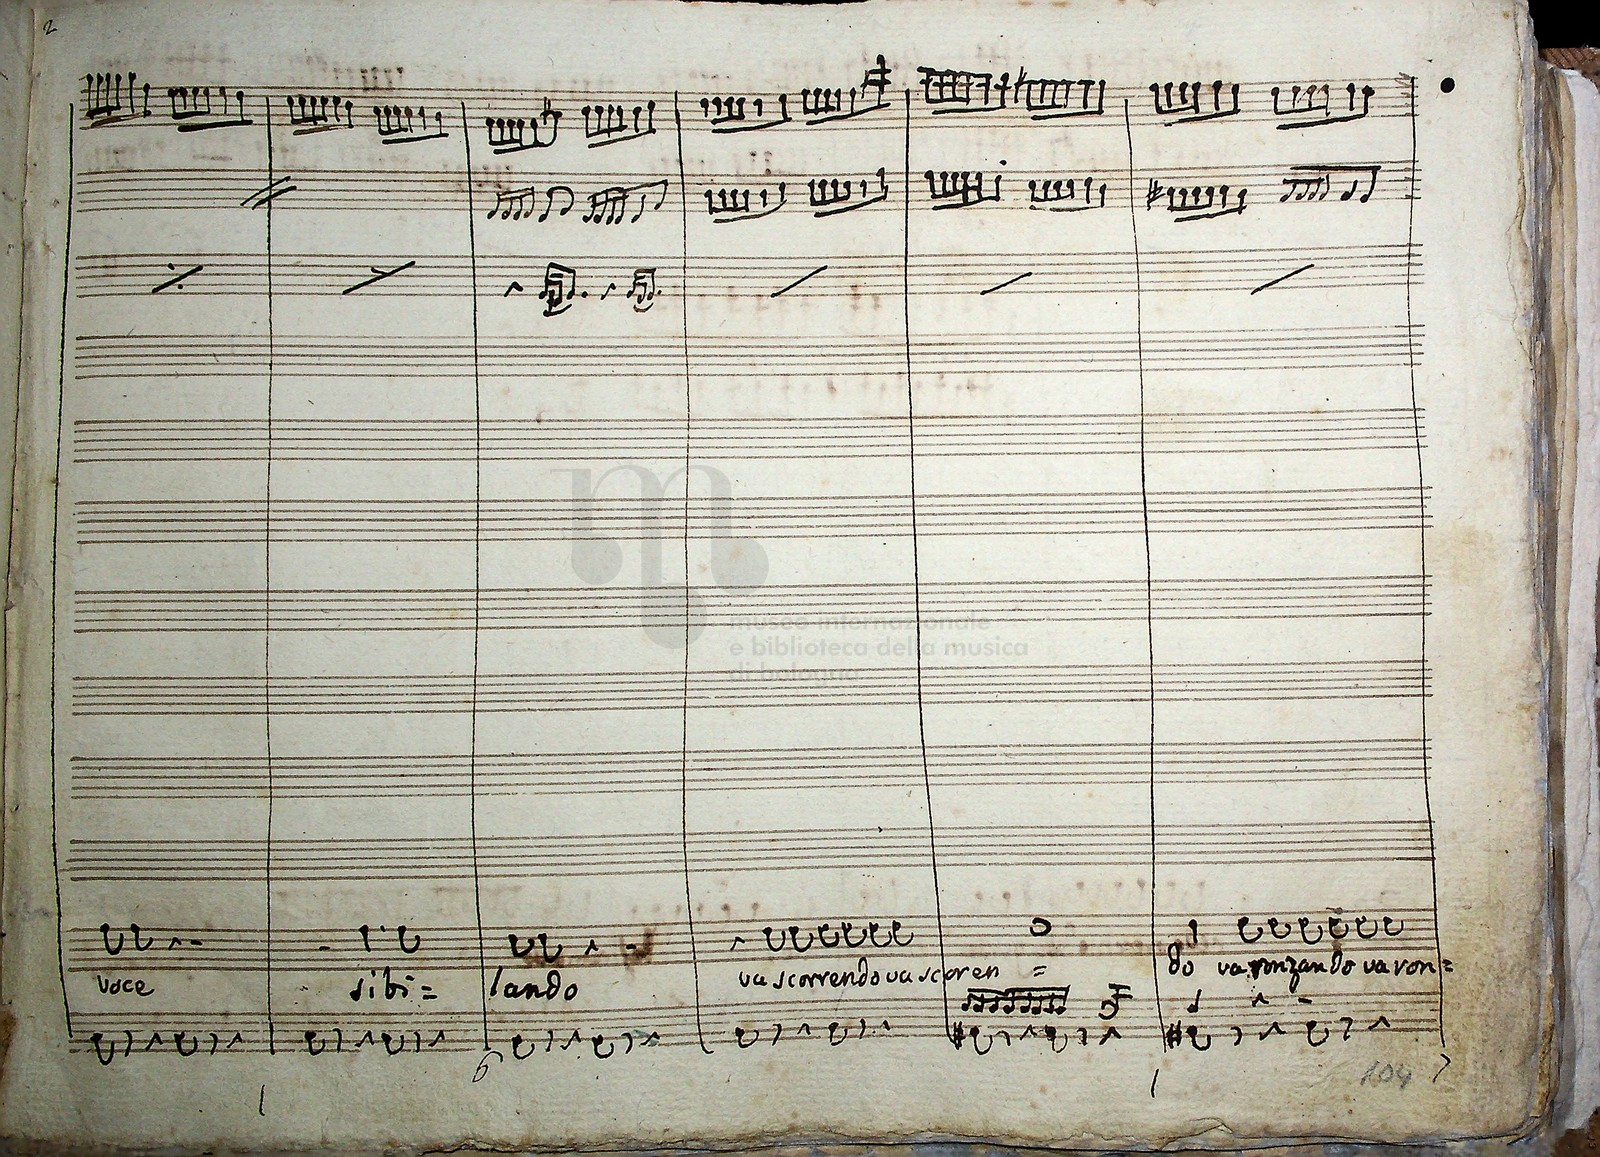 2
museo internazionale
e biblioteca della musica
di bologna
voce sibi= lando va scorrendo va scoren = do va ronzando va ron=
6
104 7